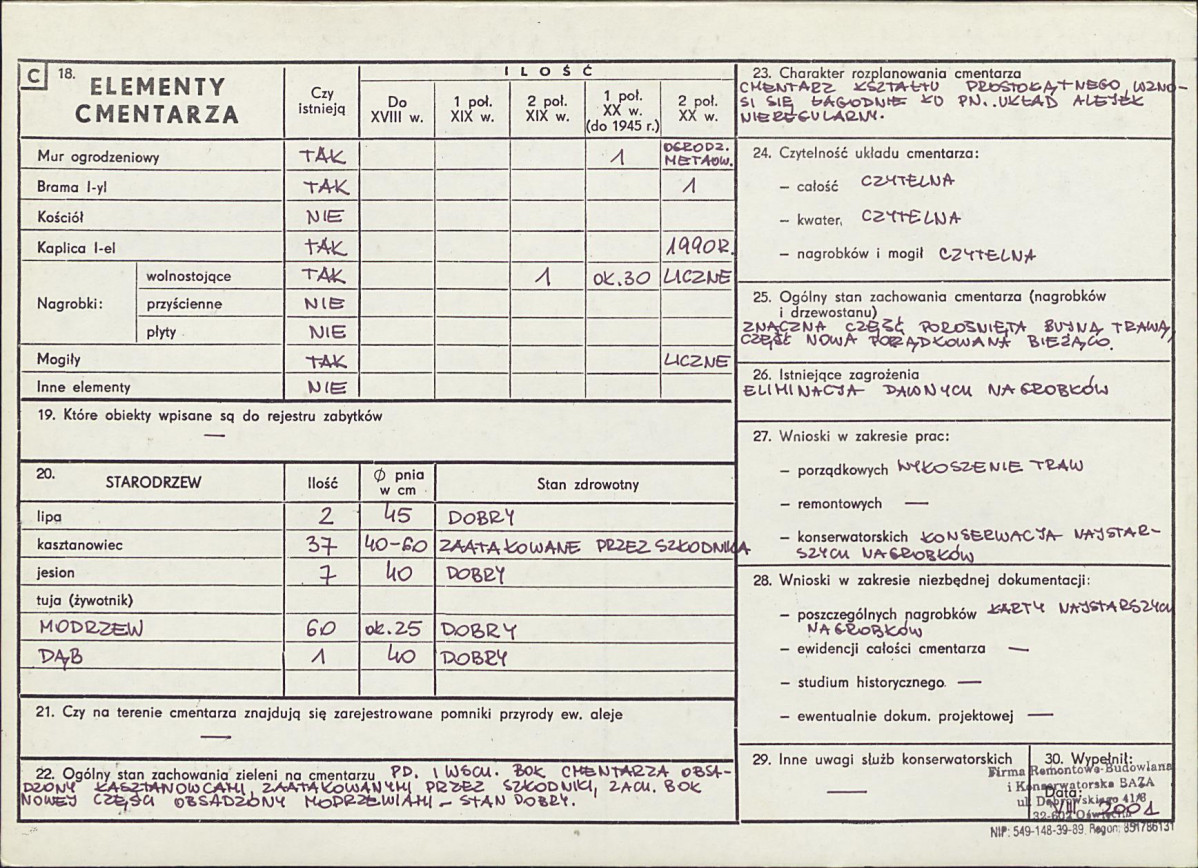 C 18. ELEMENTY CMENTARZA
Czy istnieją
ILOŚĆ
Do XVIII w.
1 poł. XIX w.
2 poł. XIX w.
1 poł. XX w. (do 1945 r.)
2 poł. XX w.
Mur ogrodzeniowy TAK 1 OGRODZ. METALOW.
Brama I-yl TAK 1
Kościół NIE
Kaplica I-el TAK 1990R.
Nagrobki:
wolnostojące TAK 1 OK.30 LICZNE
przyścienne NIE
płyty NIE
Mogiły TAK LICZNE
Inne elementy NIE
19. Które obiekty wpisane są do rejestru zabytków
—
20. STARODRZEW Ilość Ø pnia w cm Stan zdrowotny
lipa 2 45 DOBRY
kasztanowiec 37 40-60 ZAATAKOWANE PRZEZ SZKODNIKA
jesion 7 40 DOBRY
tuja (żywotnik)
MODRZEW 60 ok.25 DOBRY
DĄB 1 40 DOBRY
21. Czy na terenie cmentarza znajdują się zarejestrowane pomniki przyrody ew. aleje
—
22. Ogólny stan zachowania zieleni na cmentarzu PD. I WSCH. BOK CMENTARZA OBSA-
DZONY KASZTANOWCAMI, ZAATAKOWANYMI PRZEZ SZKODNIKI, ZACH. BOK
NOWEJ CZĘŚCI OBSADZONY MODRZEWIAMI – STAN DOBRY.
23. Charakter rozplanowania cmentarza
CMENTARZ KSZTAŁTU PROSTOKĄTNEGO, WZNO-
SI SIĘ ŁAGODNIE KU PN.. UKŁAD ALEJEK
NIEREGULARNY.
24. Czytelność układu cmentarza:
– całość CZYTELNA
– kwater, CZYTELNA
– nagrobków i mogił CZYTELNA
25. Ogólny stan zachowania cmentarza (nagrobków
i drzewostanu)
ZNACZNA CZĘŚĆ POROŚNIĘTA BUJNĄ TRAWĄ,
CZĘŚĆ NOWA PORZĄDKOWANA BIEŻĄCO.
26. Istniejące zagrożenia
ELIMINACJA DAWNYCH NAGROBKÓW
27. Wnioski w zakresie prac:
– porządkowych WYKOSZENIE TRAW
– remontowych —
– konserwatorskich KONSERWACJA NAJSTAR-
SZYCH NAGROBKÓW
28. Wnioski w zakresie niezbędnej dokumentacji:
– poszczególnych nagrobków KARTY NAJSTARSZYCH
NAGROBKÓW
– ewidencji całości cmentarza —
– studium historycznego —
– ewentualnie dokum. projektowej —
29. Inne uwagi służb konserwatorskich
—
30. Wypełnił:
Firma Remontowo-Budowlana
i Konserwatorska BAZA
Data:
ul. Dąbrowskiego 41/8
VIII 2001
32-602 Oświęcim
NIP: 549-148-39-89. Regon: 851786131